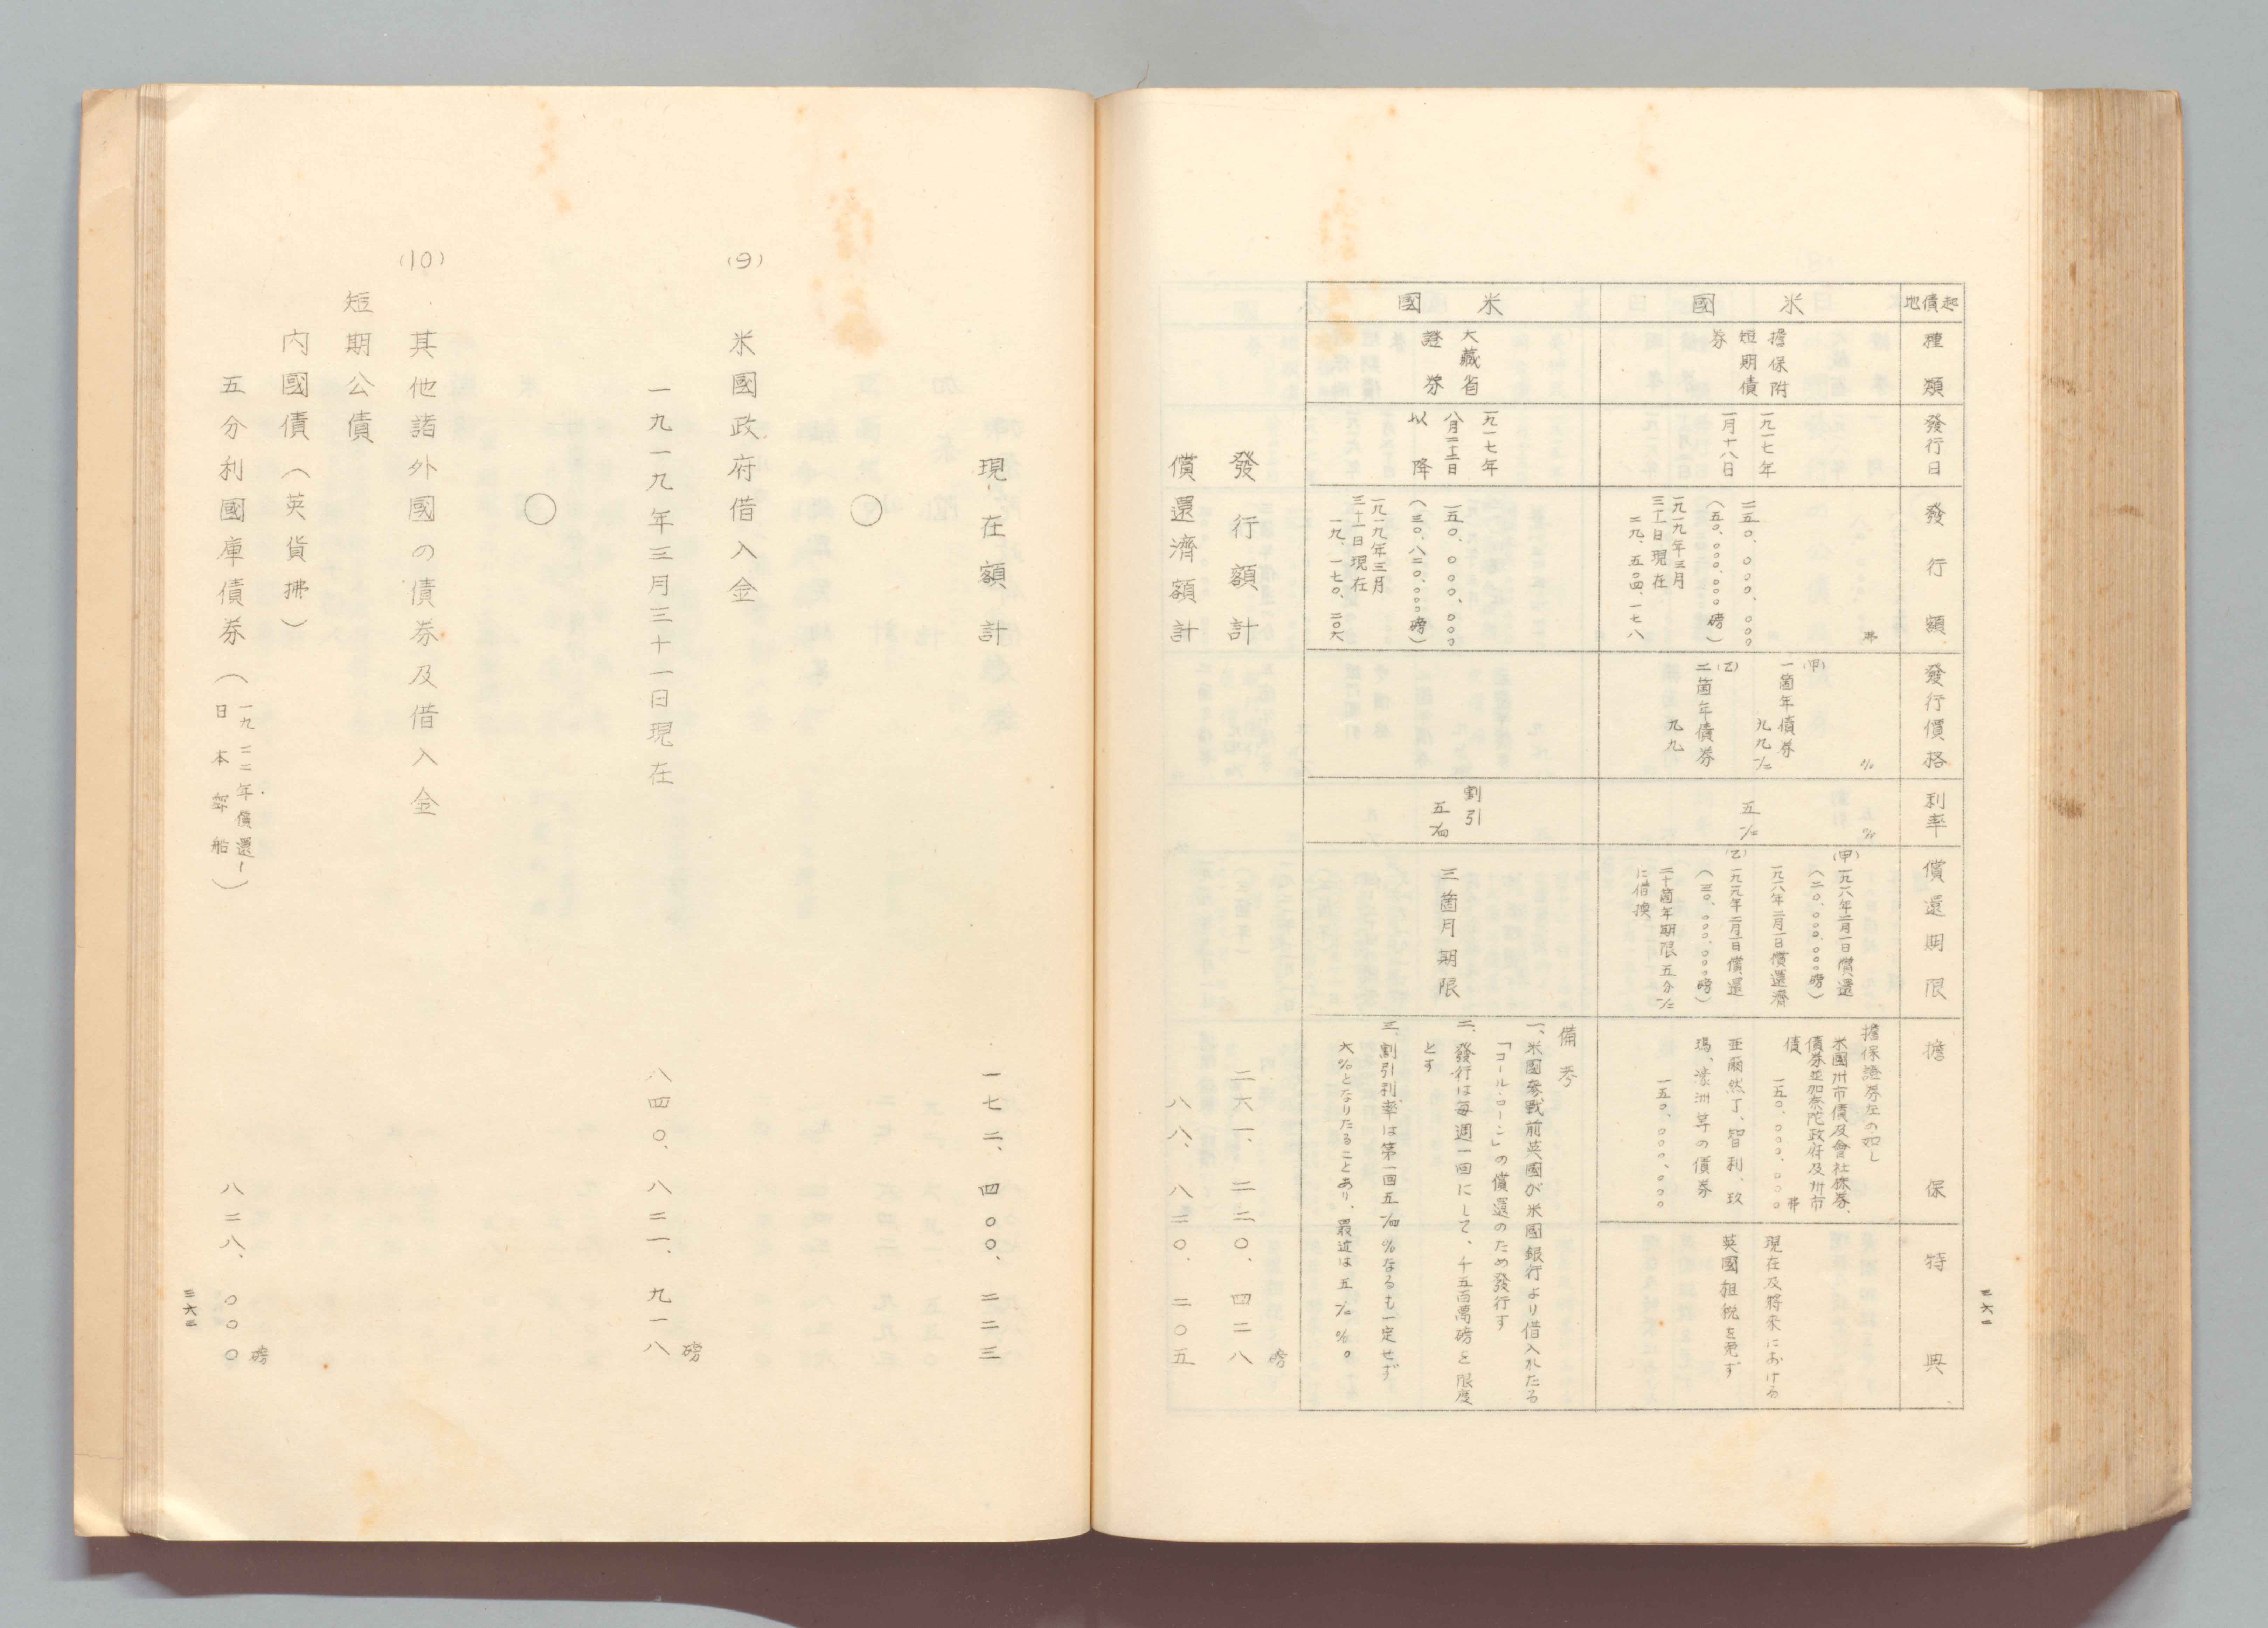 起債地
種類
發行日
發行額
發行價格
利率
償還期限
擔保
特典
米國
擔保附
短期債
券
一九一七年
一月十八日
弗
二五〇、〇〇〇、〇〇〇
(五〇、〇〇〇、〇〇〇磅)
一九一九年三月
三十一日現在
二九、五〇四、一七八
%
(甲)
一箇年債券
九九½
(乙)
二箇年債券
九九
%
五½
(甲)
一九一八年二月一日償還
(二〇、〇〇〇、〇〇〇磅)
一九一八年二月一日償還濟
(乙)
一九一九年二月一日償還
(三〇、〇〇〇、〇〇〇磅)
二十箇年期限五分½
に借換
擔保證券左の如し
米國州市債及會社株券、
債券並加奈陀政府及州市
債
弗
一五〇、〇〇〇、〇〇〇
亜爾然丁、智利、玖
瑪、濠洲等の債券
一五〇、〇〇〇、〇〇〇
現在及將來における
英國租税を免ず
米國
大藏省
證券
一九一七年
八月二十二日
以降
一五〇、〇〇〇、〇〇〇
(三〇、八二〇、〇〇〇磅)
一九一九年三月
三十一日現在
一九、一七〇、二〇六
割引
五¼
三箇月期限
備考
一、米國參戰前英國が米國銀行より借入れたる
「コール・ローン」の償還のため發行す
二、發行は毎週一回にして、千五百萬磅を限度
とす
三、割引利率は第一回五¼%なるも一定せず
六%となりたることあり、最近は五½%。
發行額計
磅
二六一、二二〇、四二八
償還濟額計
八八、八二〇、二〇五
三六二
現在額計
一七二、四〇〇、二二三
○
(9)
米國政府借入金
一九一九年三月三十一日現在
磅
八四〇、八二一、九一八
○
(10)
其他諸外國の債券及借入金
短期公債
内國債(英貨拂)
五分利國庫債券(一九二二年償還—
日本郵船)
磅
八二八、〇〇〇
三六三